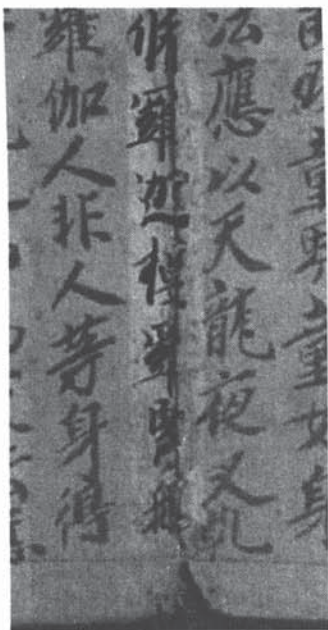 現童男童女身
法應以天龍夜叉乹
脩羅迦樓羅緊那
羅伽人非人等身得